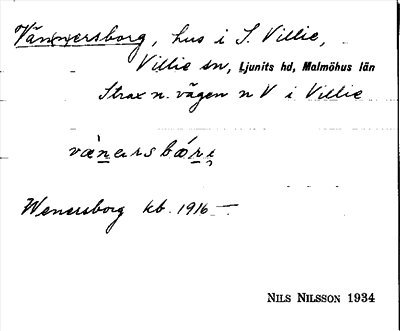 Vän(n)ersborg, hus i S. Villie,
Villie sn, Ljunits hd, Malmöhus län
Strax n. vägen n V i Villie
Wenersborg kb. 1916 —
NILS NILSSON 1934